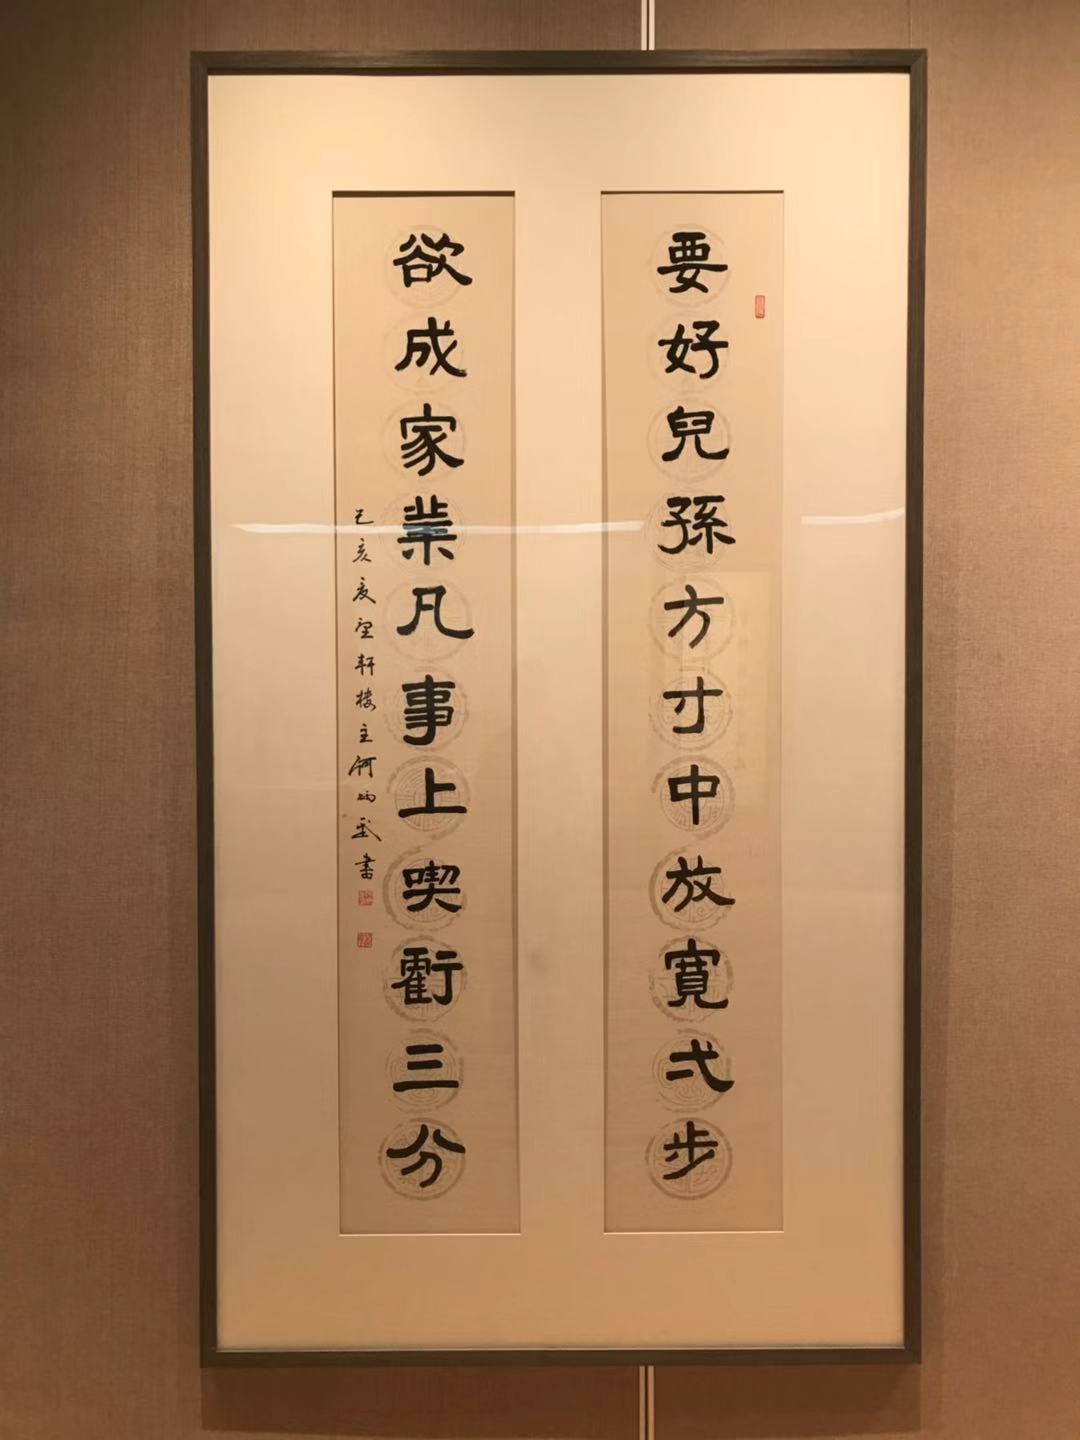 要好兒孫方寸中放寬弍步
欲成家業凡事上喫虧三分
己亥夏望軒樓主何炳武書